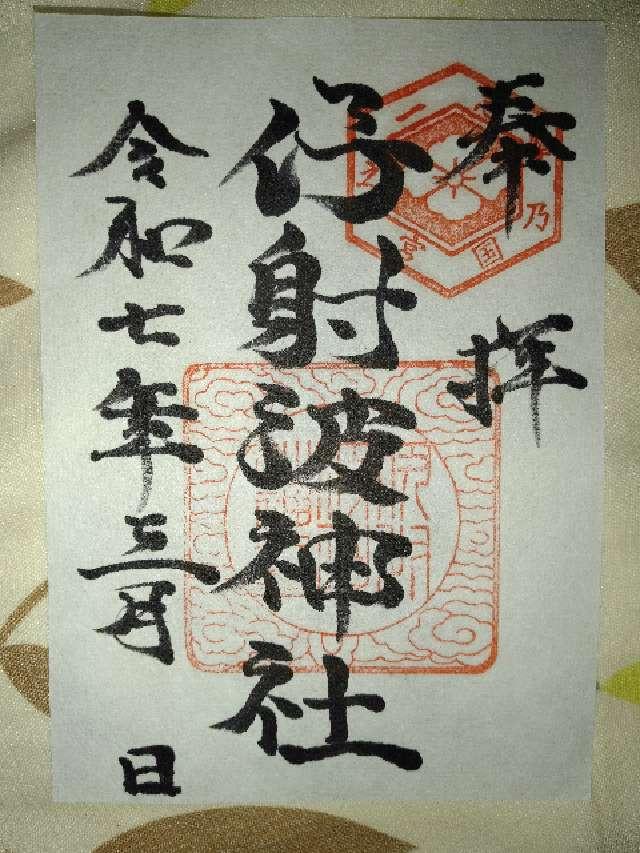 奉拝
伊射波神社
令和七年三月 日
乃国